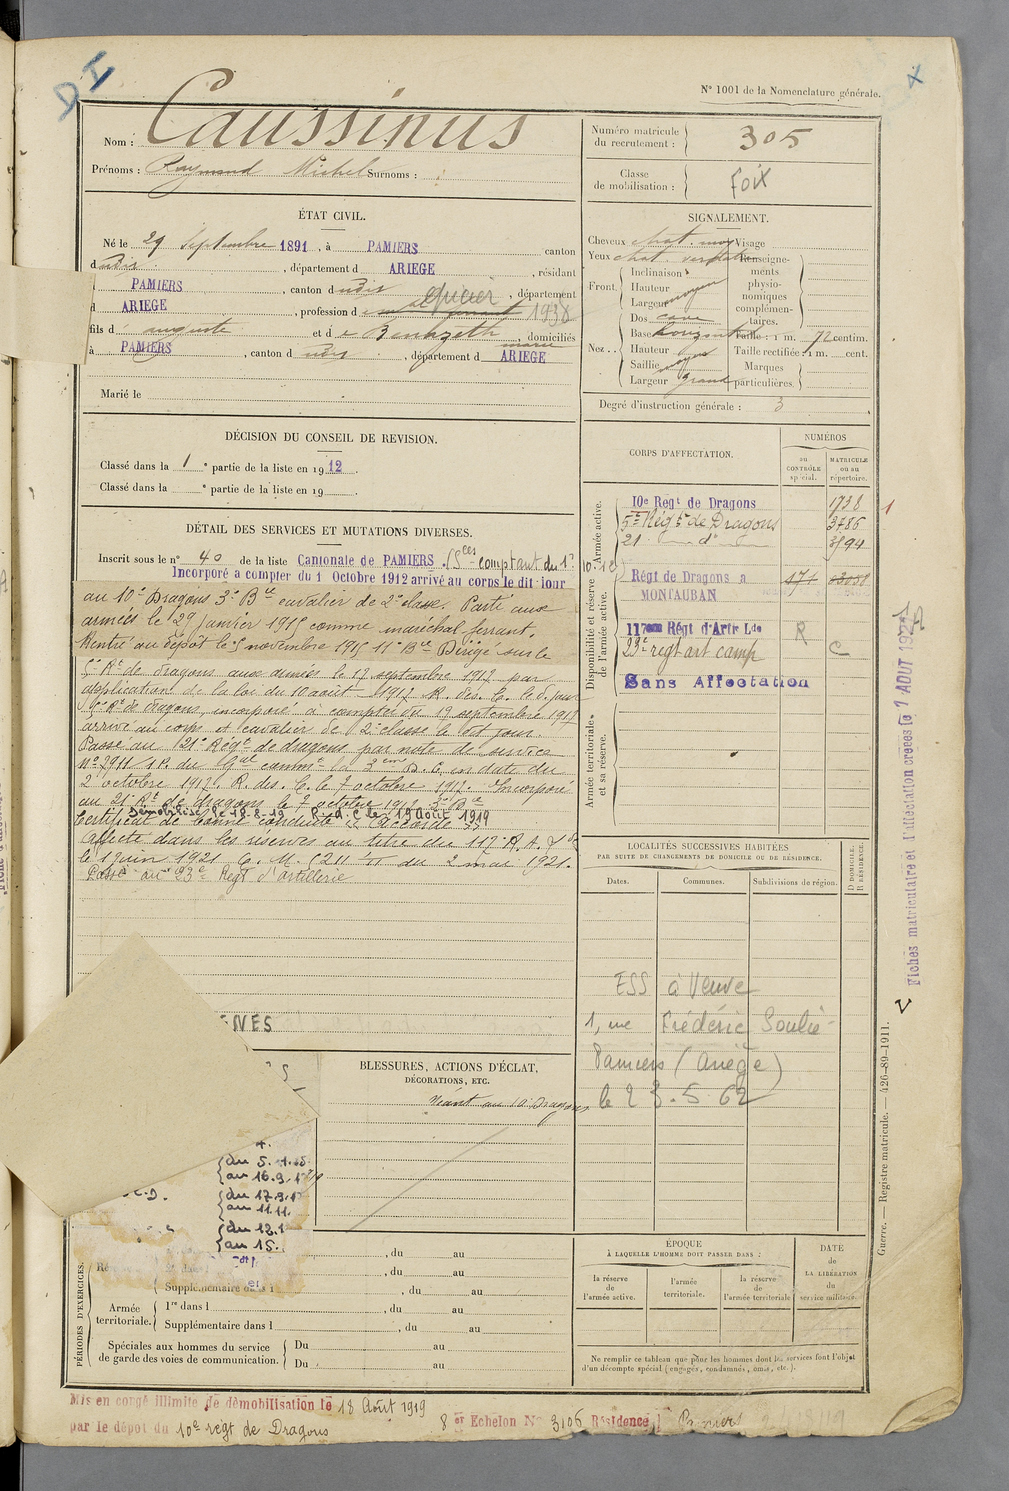 D I
X
N° 1001 de la Nomenclature générale.
Nom : Caussinus
Prénoms : Raymond Michel Surnoms :
Numéro matricule du recrutement : 305
Classe de mobilisation : Foix
ÉTAT CIVIL.
Né le 29 Septembre 1891, à PAMIERS canton
d udis, département d ARIEGE, résidant
PAMIERS, canton d udis épicier, département
d ARIEGE, profession d 1938
fils d' auguste et de Benhzeth marie domiciliés
à PAMIERS, canton d udis, département d ARIEGE
Marié le
SIGNALEMENT.
Cheveux chat. moy Visage
Yeux chat. Renseigne-
ments
physio-
nomiques
complémen-
taires.
Front. Inclinaison
Hauteur moyen
Largeur
Nez . . Dos cave
Base horizontal Taille : 1 m. 72 centim.
Hauteur moyen Taille rectifiée : 1 m. cent.
Saillie
Largeur grand
Marques particulières.
Degré d'instruction générale : 3
DÉCISION DU CONSEIL DE REVISION.
Classé dans la 1e partie de la liste en 1912.
Classé dans la e partie de la liste en 19
DÉTAIL DES SERVICES ET MUTATIONS DIVERSES.
Inscrit sous le n° 40 de la liste Cantonale de PAMIERS. (Sces comptant du 1er 10-12)
Incorporé a compter du 1 Octobre 1912 arrivé au corps le dit jour
au 10e Dragons 3e Bie cavalier de 2e classe. Parti aux
armées le 29 janvier 1915 comme maréchal ferrant.
Rentré au dépôt le 5 novembre 1915 11e Bie Dirigé sur le
5e Rt de dragons aux armées le 17 septembre 1917 par
application de la loi du 10 août 1917. R. des. C. le d. jour
5e Rt de dragons, incorporé à compter du 19 septembre 1917
arrivé au corps et cavalier de 2e classe le dit jour.
Passé au 21e Régt de dragons par note de service
n° 7911 1.P. du Gal commt la 3eme D. C. en date du
2 octobre 1917. R. des. C. le 7 octobre 1917. Incorporé
au 21e Rt de dragons le 7 octobre 1917
Démobilisé le 18-8-19 R. d. C le 19 Août 1919
Certificat de bonne conduite « Accordé »
Affecté dans les réserves au titre du 117e R. A.
le 1 juin 1921 C. M. 5211 du 2 mai 1921.
Passé au 23e Régt d'artillerie
CORPS D'AFFECTATION.
NUMÉROS
au CONTRÔLE spécial.
MATRICULE ou au répertoire.
Armée active.
10e Regt de Dragons 1738
5e Régt de Dragons 3786
21 d° 3194
Disponibilité et réserve de l'armée active.
Régt de Dragons a
MONTAUBAN
117 Régt d'Artie Lde R
23e regt art camp C
Sans Affectation
Armée territoriale et sa réserve.
Fiches matriculaire et d'affectation créées le 1 AOUT 1927
LOCALITÉS SUCCESSIVES HABITÉES
PAR SUITE DE CHANGEMENTS DE DOMICILE OU DE RÉSIDENCE.
Dates. Communes. Subdivisions de région.
D DOMICILE.
R RÉSIDENCE.
ESS à Veuve
1, rue Frédéric Soulié
Pamiers (Ariège)
le 23.5.62
BLESSURES, ACTIONS D'ÉCLAT,
DÉCORATIONS, ETC.
Néant au 10e Dragons
NES
du 5.
au 16.9.17
du 17.9.17
au 11.11.
du 12.1
au 15.
, du au
, du au
Supplémentaire dans l , du au
PÉRIODES D'EXERCICES.
Armée territoriale. 1re dans l , du au
Supplémentaire dans l , du au
Spéciales aux hommes du service
de garde des voies de communication. Du au
Du au
ÉPOQUE
À LAQUELLE L'HOMME DOIT PASSER DANS :
la réserve de l'armée active.
l'armée territoriale.
la réserve de l'armée territoriale
DATE de LA LIBÉRATION du service militaire.
Ne remplir ce tableau que pour les hommes dont les services font l'objet
d'un décompte spécial (engagés, condamnés, omis, etc.).
Guerre. — Registre matricule. — 426-89-1911.
Mis en congé illimité de démobilisation le 18 Août 1919
par le dépôt du 10e régt de Dragons
8 er Echelon N° 3106 Résidence Pamiers